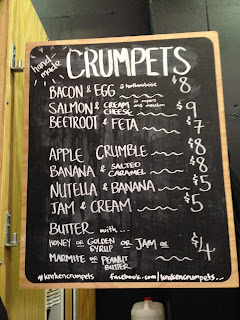 hand made CRUMPETS
BACON & EGG & hollandaise $8
SALMON & CREAM CHEESE $9
BEETROOT & FETA $7
APPLE CRUMBLE $8
BANANA & SALTED CARAMEL $8
NUTELLA & BANANA $5
JAM & CREAM $5
BUTTER with...
HONEY OR GOLDEN SYRUP OR JAM OR
MARMITE OR PEANUT BUTTER $4
facebook.com/krakencrumpets...